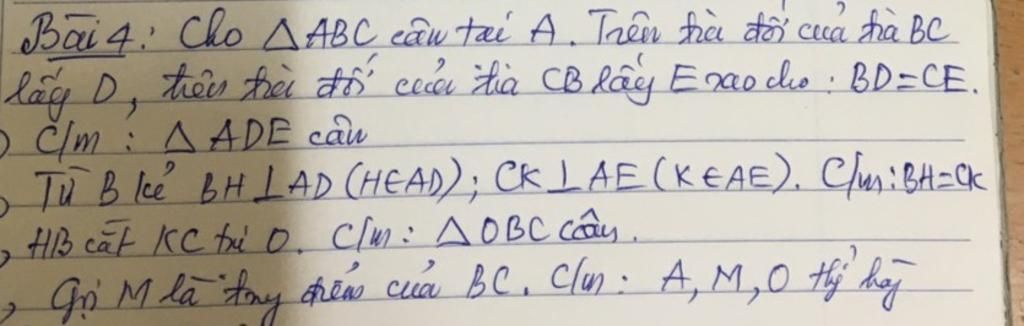 Bài 4: Cho △ABC cân tại A. Trên tia đối của tia BC
lấy D, trên tia đối của tia CB lấy E sao cho: BD=CE.
) C/m: △ADE cân
) Từ B kẻ BH⊥AD (H∈AD); CK⊥AE (K∈AE). C/m: BH=CK
, HB cắt KC tại O. C/m: △OBC cân.
, Gọi M là trung điểm của BC. C/m: A, M, O thẳng hàng